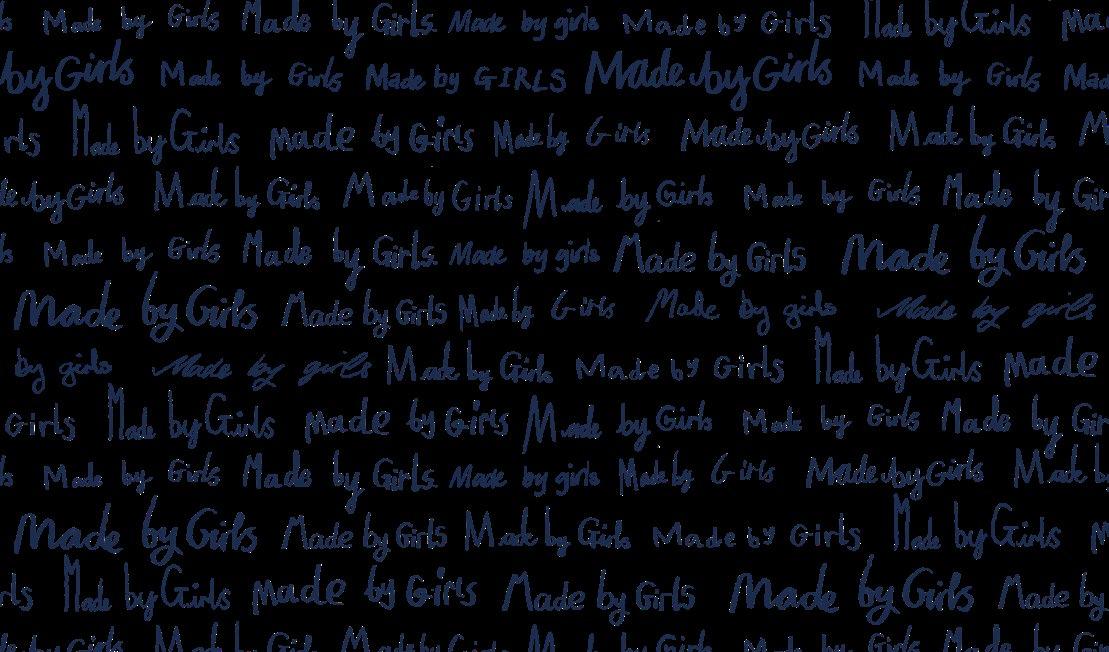 Made by Girls Made by Girls. Made by girls Made by Girls Made by Girls
by Girls Made by Girls Made by GIRLS Made by Girls Made by Girls
Made by Girls made by Girls Made by Girls Made by Girls Made by Girls
by Girls Made by Girls Made by Girls Made by Girls Made by Girls Made by
Made by Girls Made by Girls. Made by girls Made by Girls Made by Girls
Made by Girls Made by Girls Made by Girls Made by girls Made by girls
by girls Made by girls Made by Girls Made by Girls Made by Girls made
Girls Made by Girls made by Girls Made by Girls Made by Girls Made by
Made by Girls Made by Girls. Made by girls Made by Girls Made by Girls Made b
Made by Girls Made by Girls Made by Girls Made by Girls Made by Girls
Made by Girls made by Girls Made by Girls Made by Girls Made by
Made by Girls Made by Girls Made by Girls Made by Girls Made by Girls Made by